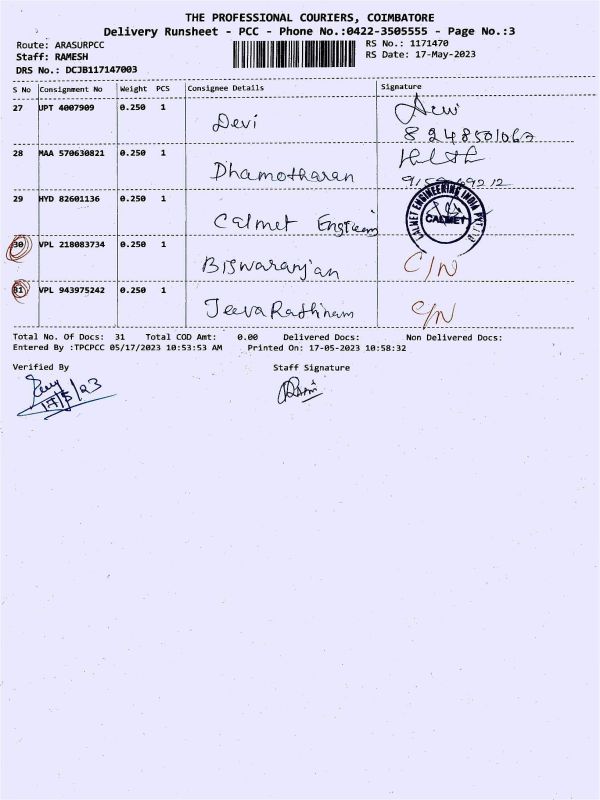 THE PROFESSIONAL COURIERS, COIMBATORE
Delivery Runsheet - PCC - Phone No.:0422-3505555 - Page No.:3
Route: ARASURPCC RS No.: 1171470
Staff: RAMESH RS Date: 17-May-2023
DRS No.: DCJB117147003
S No Consignment No Weight PCS Consignee Details Signature
27 UPT 4007909 0.250 1 Devi Devi
8248501067
28 MAA 570630821 0.250 1 Dhamotharan
29 HYD 82601136 0.250 1 Calmet
CALMET ENGINEERING INDIA PVT LTD
CALMET
30 VPL 218083734 0.250 1 Biswaranjan C/N
31 VPL 943975242 0.250 1 Jeeva Rathinam C/N
Total No. Of Docs: 31 Total COD Amt: 0.00 Delivered Docs: Non Delivered Docs:
Entered By :TPCPCC 05/17/2023 10:53:53 AM Printed On: 17-05-2023 10:58:32
Verified By Staff Signature
17/5/23